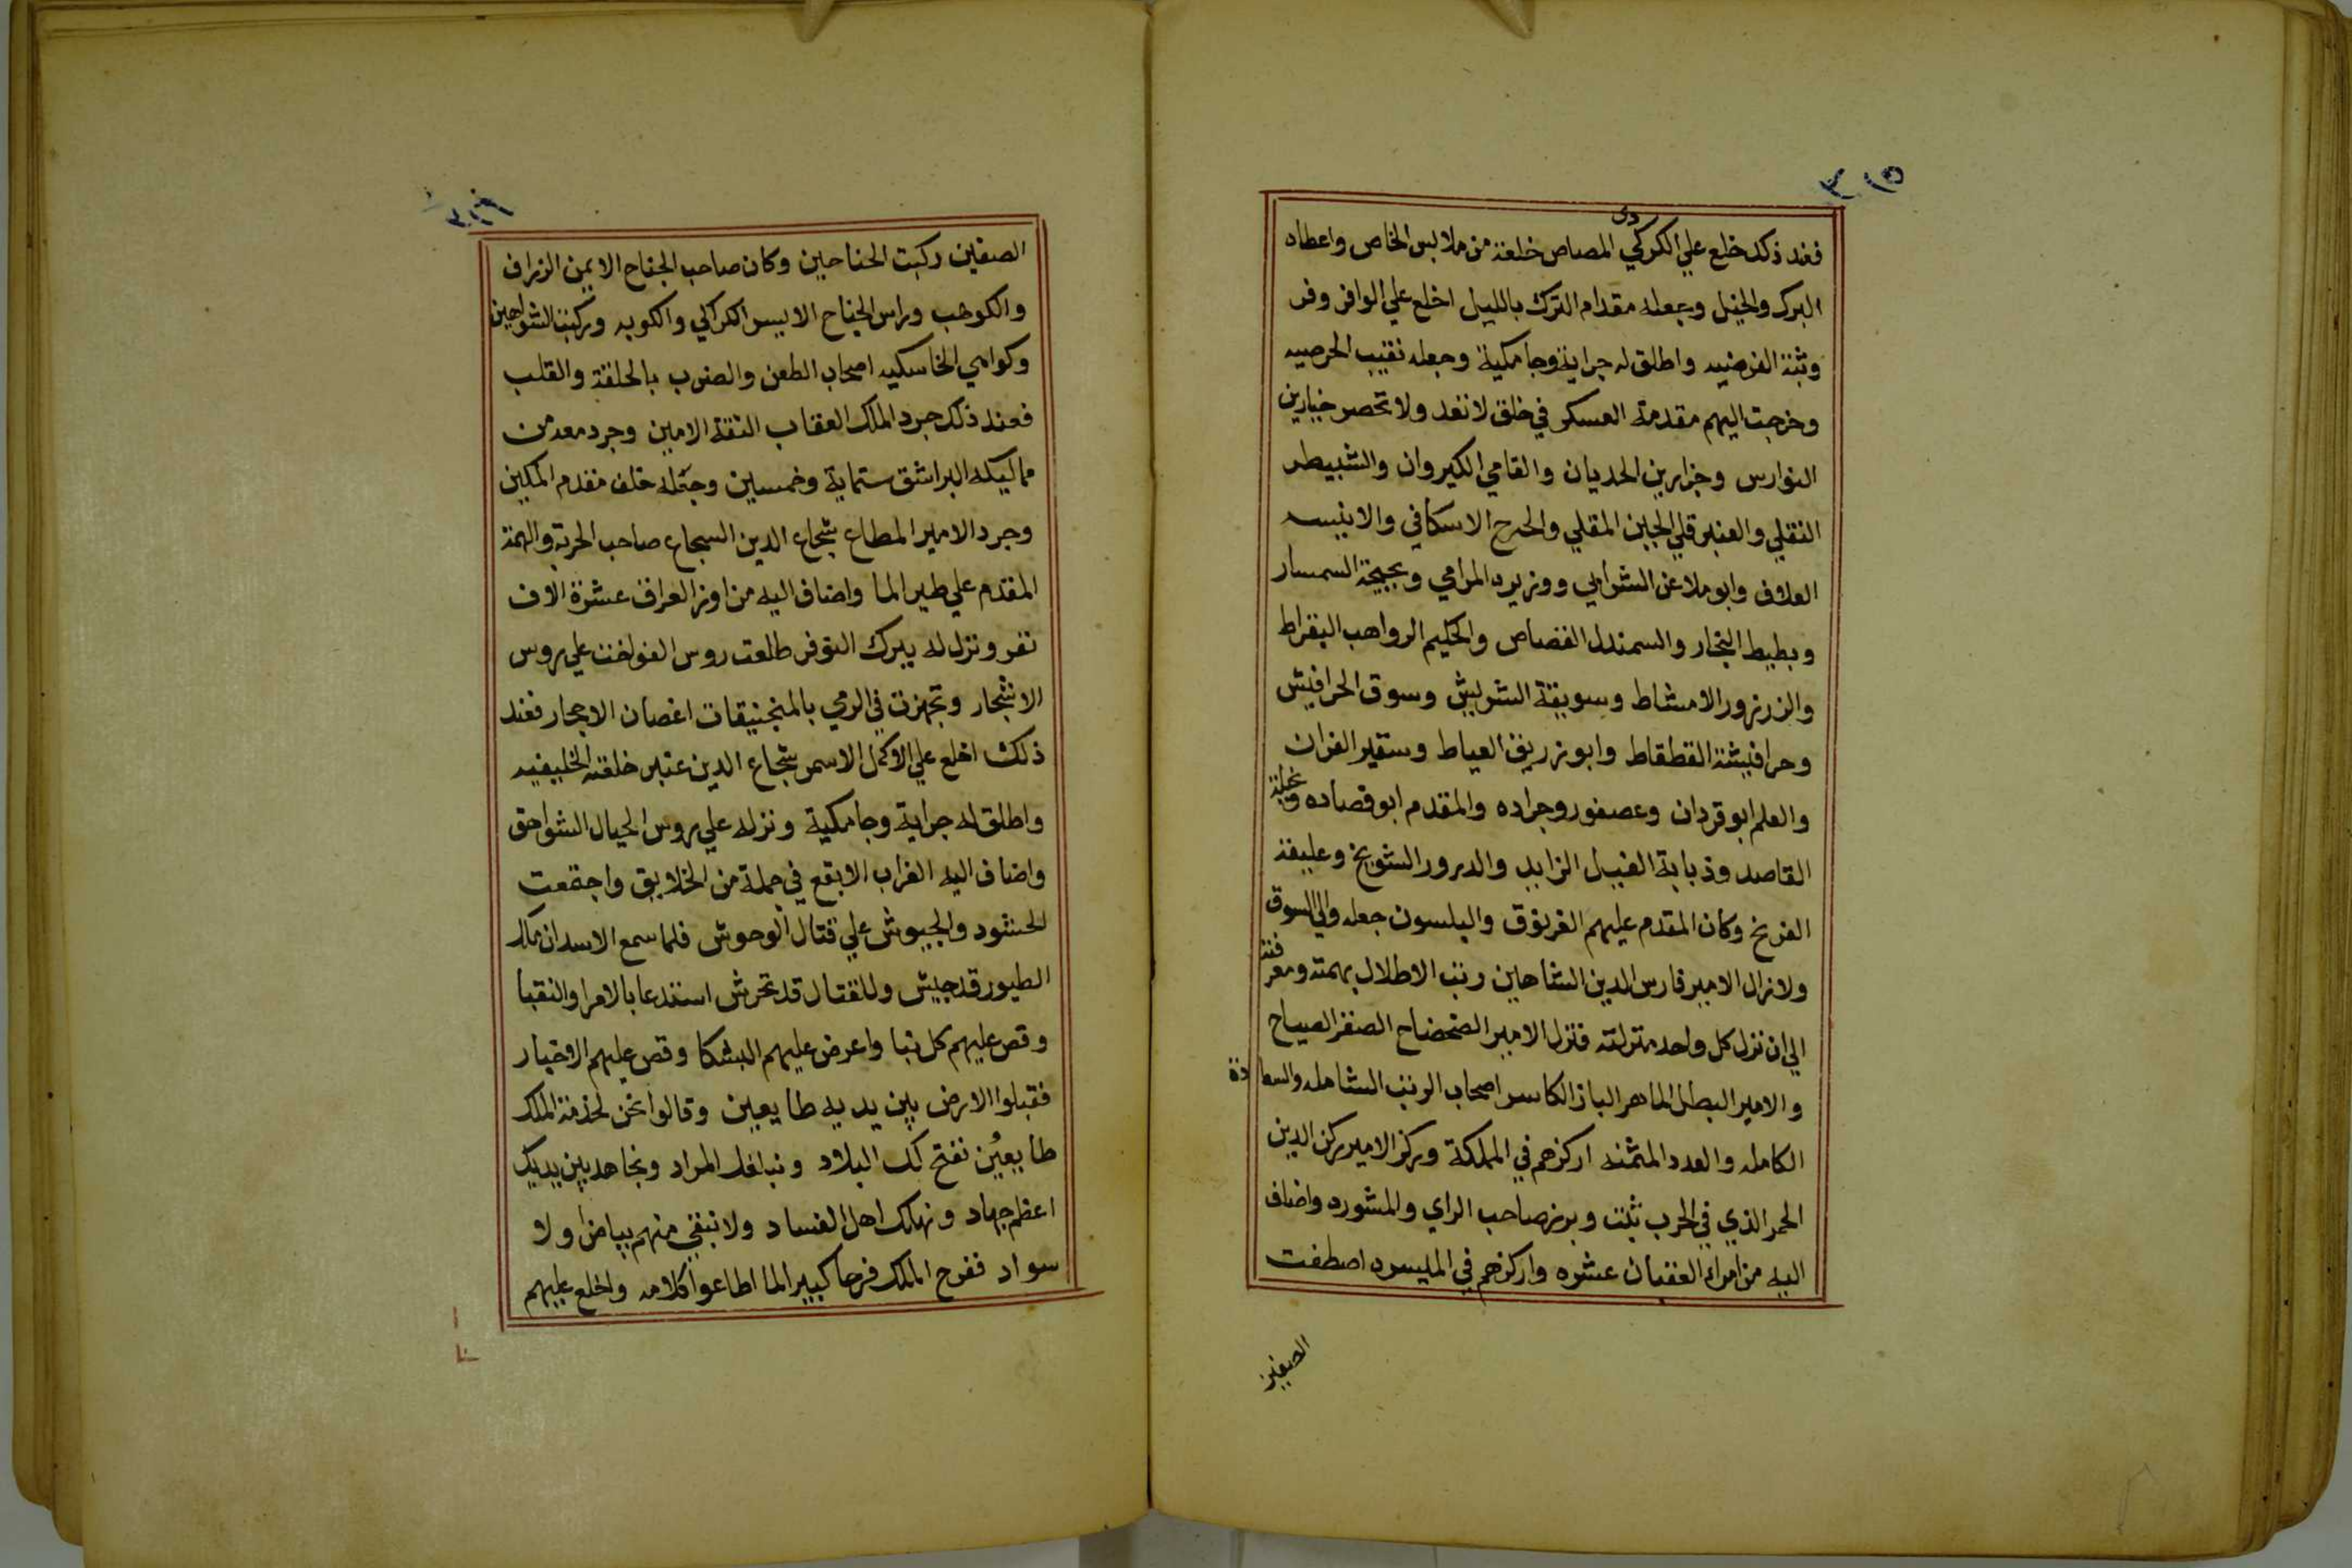 ٣١٥
فعند ذلك خلع علي الكركي المصاص خلعة من ملابس الخاص واعطاه
البرك والخيل وجعله مقدام الترك بالليل اخلع علي الوافر وفر
وثبتة الفرضيه واطلق له جراية وجامكية وجعله نقيب الحرصيه
وخرجت اليهم مقدمة العسكر في خلق لا تعد ولا تحصر خبارين
النوارس وجزارين الحديان والقامي الكيروان والشبيطر
النقلي والعنبر قلي الجبن المقلي والحدج الاسكافي والانيسه
العلاف وابو ملاعن الشرابي ووزيرد المرامي وبجيجة السمسار
وبطيط النجار والسمندل القصاص والحكيم الرواهب البقراط
والزرزور الامشاط وسويقة الشرليش وسوق الحرافيش
وحرافيشة القطقاط وابو زريق العياط وسقير الفران
والعلم ابو قردان وعصفور وجراده والمقدم ابو فصاده ونحلة
القاصد وذبابة الفيل الزابد والدرور الشويخ وعليقة
الفريخ وكان المقدم عليهم الغرنوق والبلسون جعله والي السوق
ولا زال الامير فارس الدين الشاهين رتب الاطلال بهمته ومعرفته
الي ان نزل كل واحد منزلته فنزل الامير الضحضاح الصقر الصياح
والامير البطل الماهر الباز الكاسر اصحاب الرتب الشامله والسعادة
الكامله والعدد المثمنه اركزهم في المملكة وركز الامير ركن الدين
الحمر الذي في الحرب ثبت وبرز صاحب الراي والمشوره واضاف
اليه من امراء العقبان عشره واركزهم في الميسره اصطفت
الصفين
٣١٦
الصفين ركبت الجناحين وكان صاحب الجناح الايمن الزراف
والكوهب وراس الجناح الايسر الكراكي والكوبه وركبت الشواهين
وكوامي الخاسكيه اصحاب الطعن والضرب بالحلقة والقلب
فعند ذلك جرد الملك العقاب الثقة الامين وجرد معه من
مماليكه البراشق ستماية وخمسين وجعله خلف مقدم المكين
وجرد الامير المطاع شجاع الدين السجاع صاحب الحربة والهمة
المقدم علي طير الما واضاف اليه من اوز العراق عشرة الاف
نفر ونزل له ببرك التوفر طلعت روس الفواخت علي روس
الاشجار وتجهزت في الرمي بالمنجنيقات اغصان الاحجار فعند
ذلك اخلع علي الاكحل الاسمر شجاع الدين عنبر خلعته الخليفيه
واطلق له جراية وجامكية ونزله علي روس الجبال الشواهق
واضاف اليه الغراب الابقع في جملة من الخلايق واجتمعت
الحشود والجيوش علي قتال الوحوش فلما سمع الاسد ان ملك
الطيور قد جيش وللقتال قد تحرش استدعا بالامرا والنقبا
وقص عليهم كل نبا واعرض عليهم البشكا وقص عليهم الاخبار
فقبلوا الارض بين يديه طايعين وقالوا نحن لخدمة الملك
طايعين نفتح لك البلاد ونبلغك المراد ونجاهد بين يديك
اعظم جهاد ونهلك اهل الفساد ولا نبقي منهم بياض ولا
سواد ففرح الملك فرحا كبيرا لما اطاعوا كلامه واخلع عليهم